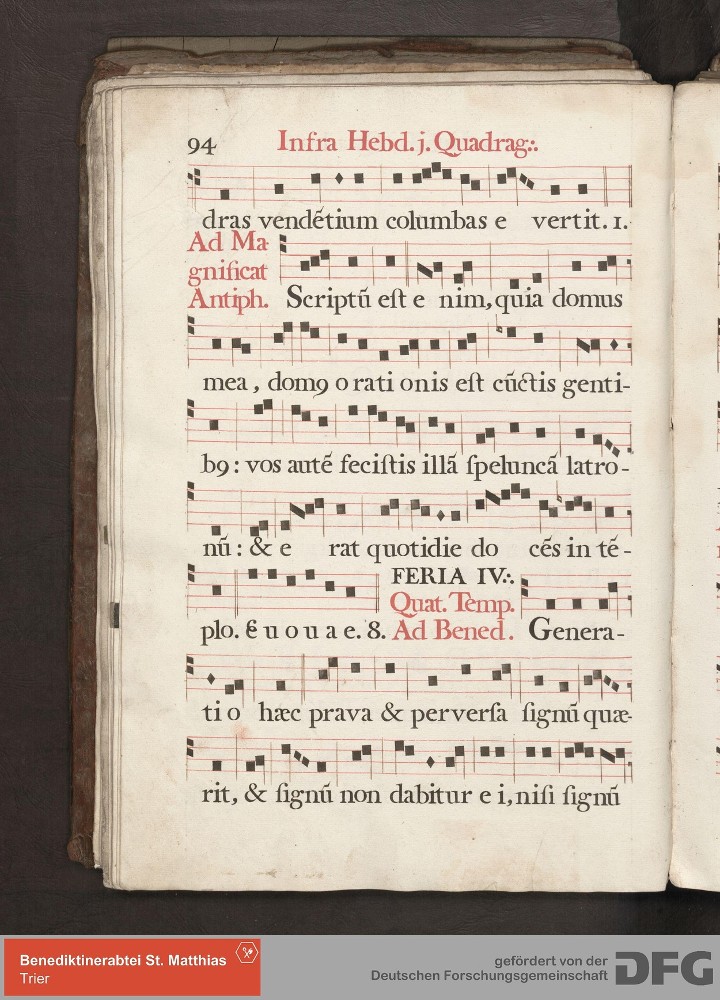 94 Infra Hebd. j. Quadrag∴
dras vendẽtium columbas e vertit. 1.
Ad Ma
gnificat
Antiph. Scriptũ eſt e nim, quia domus
mea, domꝯ o rati onis eſt cũctis genti-
bꝯ: vos autẽ feciſtis illã ſpeluncã latro-
nũ: & e rat quotidie do cẽs in tẽ-
FERIA IV∴
Quat. Temp.
plo. E u o u a e. 8. Ad Bened. Genera-
ti o hæc prava & perverſa ſignũ quæ-
rit, & ſignũ non dabitur e i, niſi ſignũ
Benediktinerabtei St. Matthias
Trier
gefördert von der
Deutschen Forschungsgemeinschaft DFG